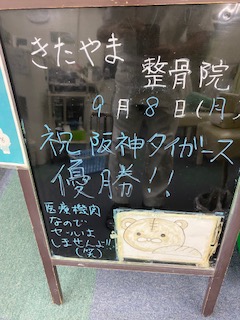 きたやま
整骨院
9月8日(月)
祝阪神タイガース
優勝!!
医療機関
なので
セールは
しませんよ!!
(笑)